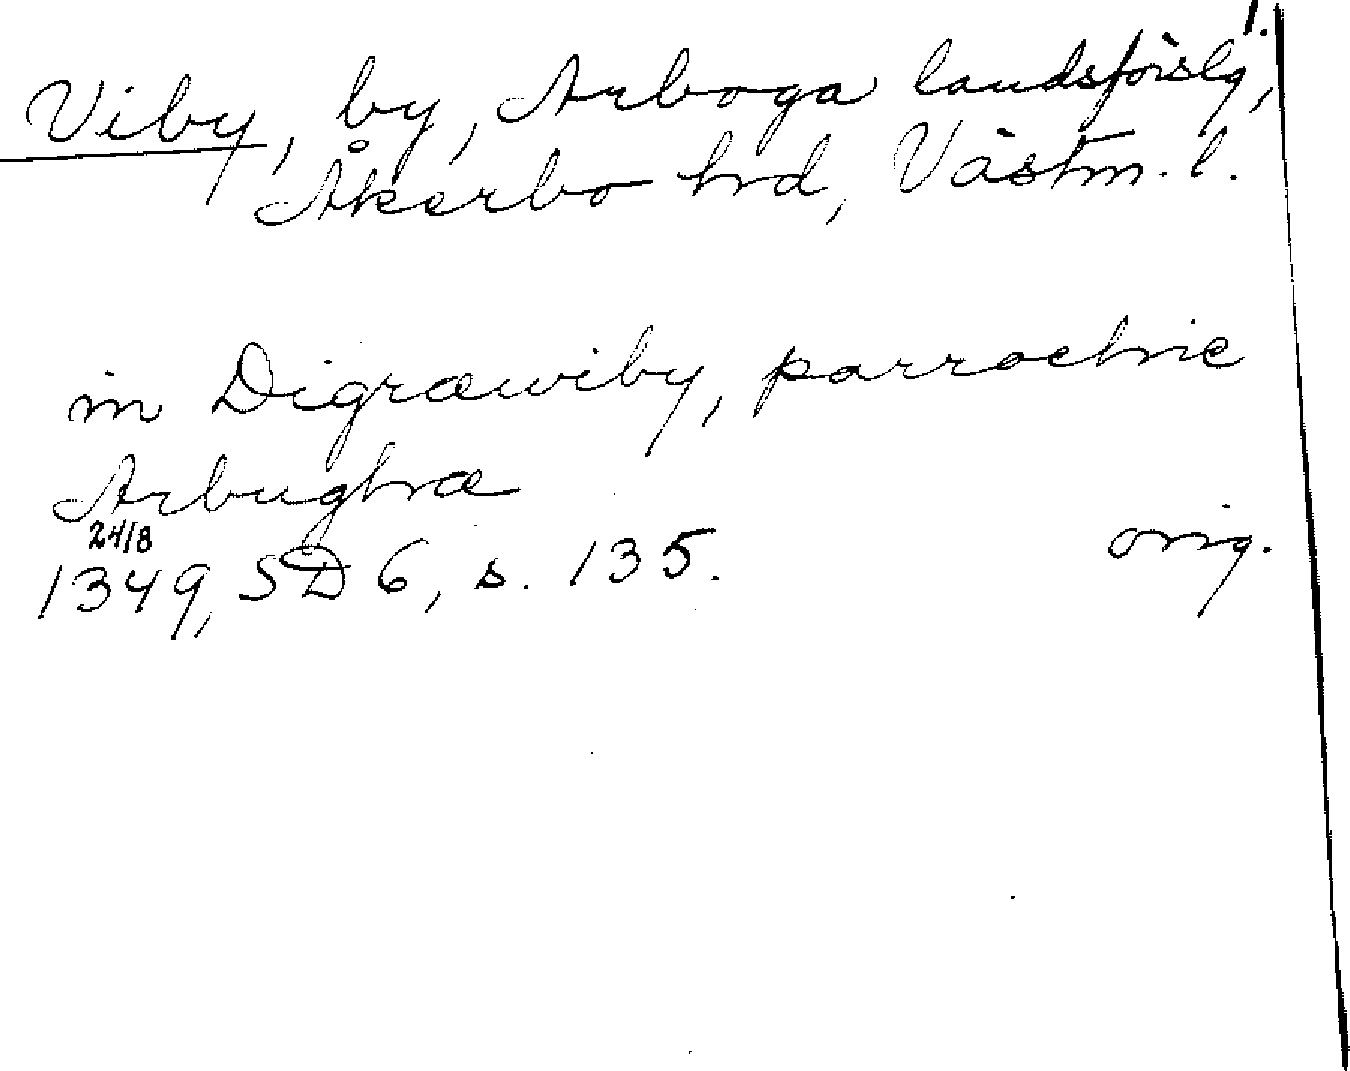 1.
Viby, by, Arboga landsförslg,
Åkerbo hrd, Västm. l.
in Digræwiby, parrochie
Arbughræ
24/8
1349, SD 6, s. 135. orig.